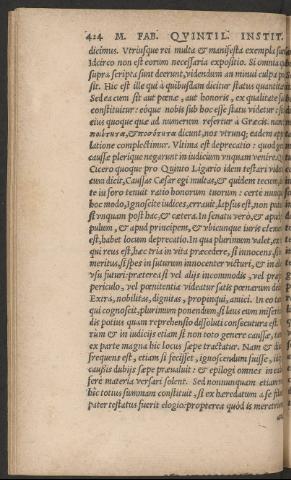 424 M. FAB. QVINTIL. INSTIT.
dicimus. Vtriusque rei multa & manifesta exempla
Idcirco non est eorum necessaria expositio. Si omnia
supra scripta sunt deerunt, videndum an minui culpa
sit. Hic est ille quē à quibusdam dicitur status quantitatis
Sed ea cum sit aut pœnæ, aut honoris, ex qualitate
constituitur: eóque nobis sub hoc esse statu videtur:
eius quoque quæ ad numerum refertur à Græcis. nam
& dicunt, nos vtrunq; eadem
latione complectimur. Vltima est deprecatio: quod
causæ plerique negarunt in iudicium vnquam venire.
Cicero quoque pro Quinto Ligario idem testari
cum dicit, Causas Cæsar egi multas, & quidem tecum,
te in foro tenuit ratio honorum tuorum: certè nunquā
hoc modo, Ignoscite iudices, errauit, lapsus est, non
si vnquam post hac, & cætera. In senatu verò, & apud
pulum, & apud principem, & vbicunque iuris
est, habet locum deprecatio. In qua plurimum valet, ex
qui reus est, hæc tria: in vita præcedere, si innocens, si
meritus, si spes in futurum innocenter victuri, & in
vsu futuri: præterea si vel alijs incommodis, vel
periculo, vel pœnitentia videatur satis pœnarum
Extra, nobilitas, dignitas, propinqui, amici. In eo
qui cognoscit, plurimum ponendum, si laus eum
dis potius quam reprehensio dissoluti consecutura est.
rūm & in iudicijs etiam si non toto genere causæ,
ex parte magna hic locus sæpe tractatur. Nam &
frequens est, etiam si fecisset, ignoscendum fuisse,
causis dubijs sæpe præualuit: & epilogi omnes in
fere materia versari solent. Sed nonnunquam etiam
hic totius summam constituit, si ex hæredatum a se
pater testatus fuerit elogio: propterea quòd is